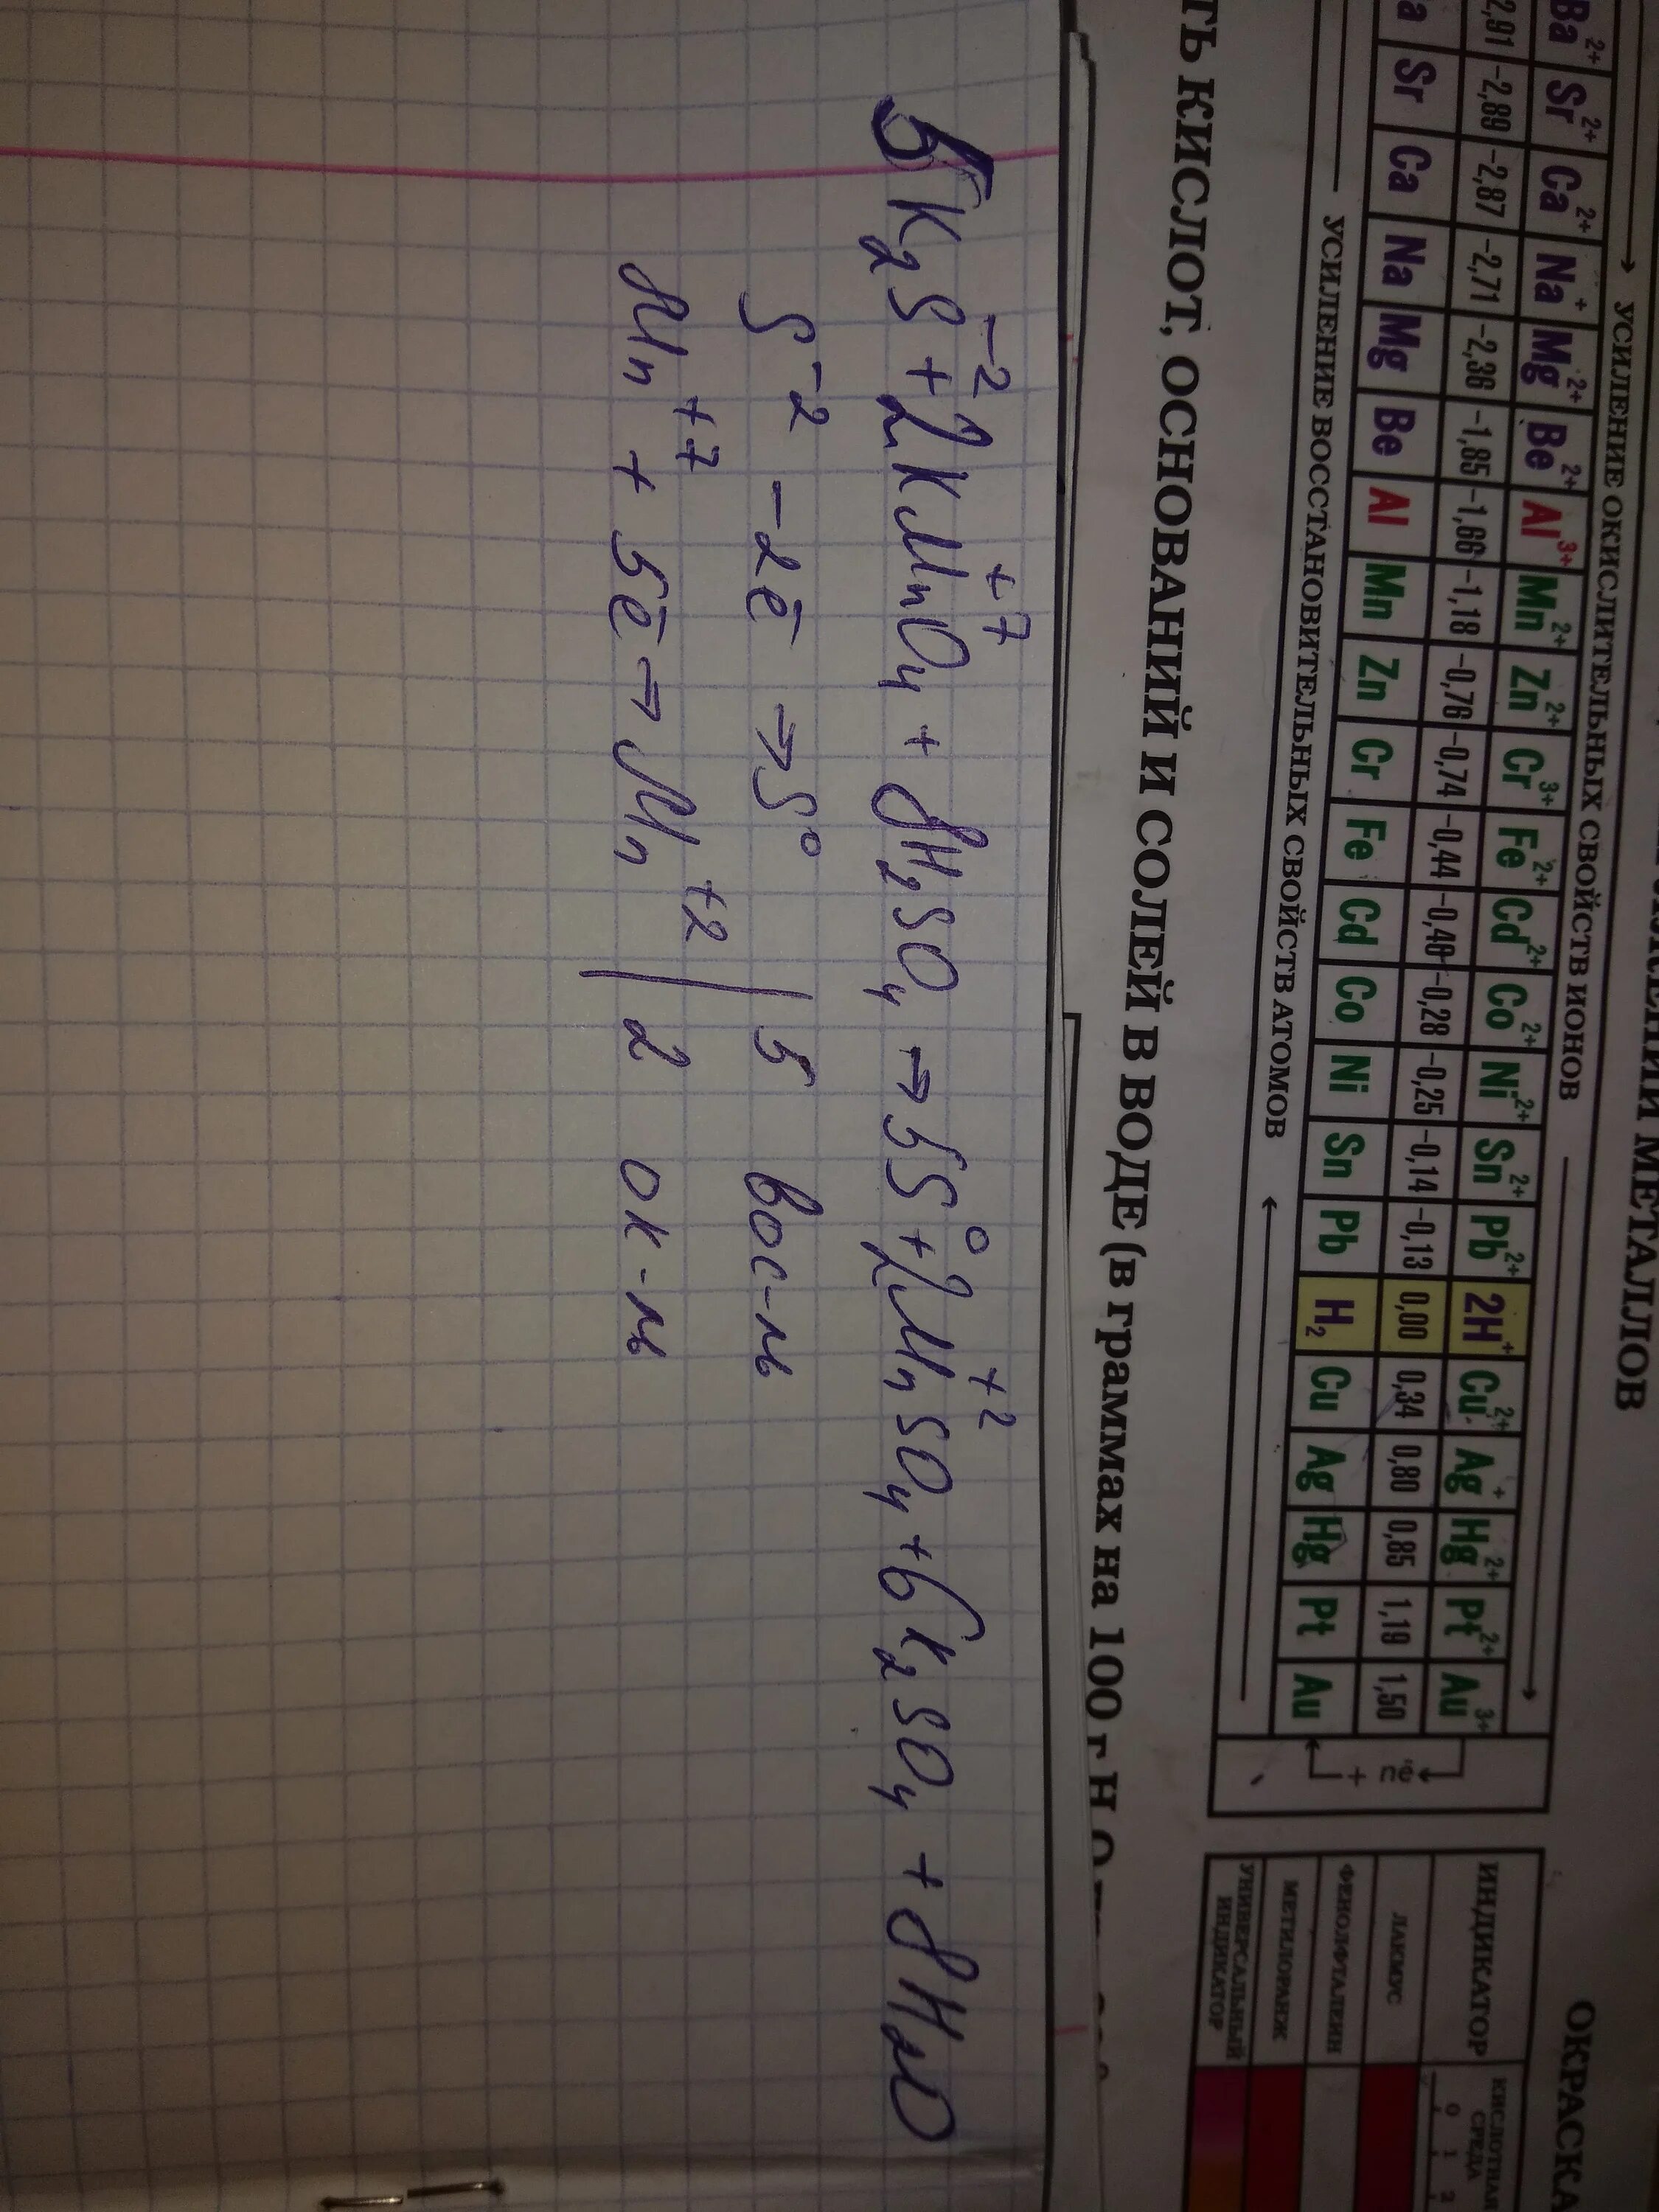 УСИЛЕНИЕ ОКИСЛИТЕЛЬНЫХ СВОЙСТВ ИОНОВ
Ba²⁺ Sr²⁺ Ca²⁺ Na⁺ Mg²⁺ Be²⁺ Al³⁺ Mn²⁺ Zn²⁺ Cr³⁺ Fe²⁺ Cd²⁺ Co²⁺ Ni²⁺ Sn²⁺ Pb²⁺ 2H⁺ Cu²⁺ Ag⁺ Hg²⁺ Pt²⁺ Au³⁺
2,91 −2,89 −2,87 −2,71 −2,36 −1,85 −1,66 −1,18 −0,76 −0,74 −0,44 −0,40 −0,28 −0,25 −0,14 −0,13 0,00 0,34 0,80 0,85 1,19 1,50
a Sr Ca Na Mg Be Al Mn Zn Cr Fe Cd Co Ni Sn Pb H₂ Cu Ag Hg Pt Au
УСИЛЕНИЕ ВОССТАНОВИТЕЛЬНЫХ СВОЙСТВ АТОМОВ
МЕТАЛЛОВ
+
ОКРАСКА
ИНДИКАТОР
КИСЛОТНАЯ
СРЕДА
0 1 2
ЛАКМУС
ФЕНОЛФТАЛЕИН
МЕТИЛОРАНЖ
УНИВЕРСАЛЬНЫЙ
ИНДИКАТОР
ТЬ КИСЛОТ, ОСНОВАНИЙ И СОЛЕЙ В ВОДЕ (в граммах на 100 г
5K₂S⁻² + 2KMn⁺⁷O₄ + 8H₂SO₄ → 5S⁰ + 2Mn⁺²SO₄ + 6K₂SO₄ + 8H₂O
S⁻² − 2ē → S⁰ | 5 вос-ль
Mn⁺⁷ + 5ē → Mn⁺² | 2 ок-ль